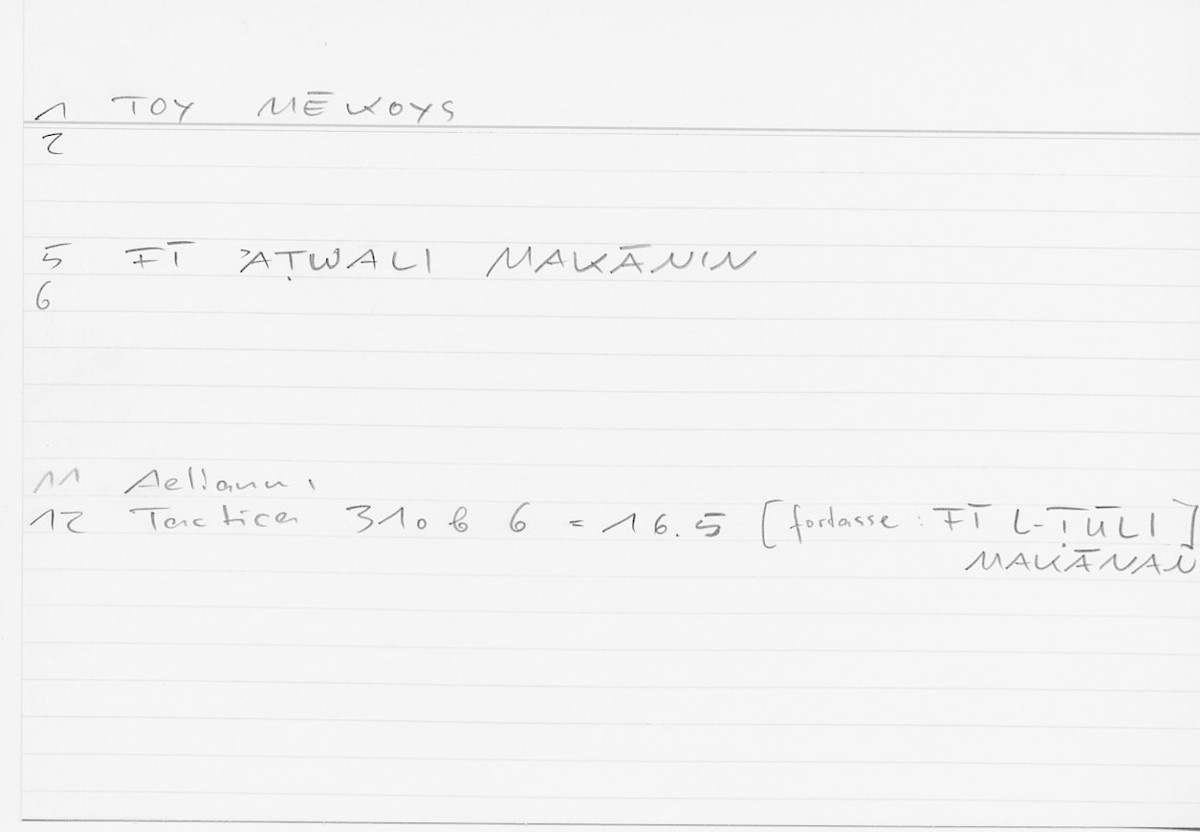 1 TOY MĒKOYS
2
5 FĪ ʾAṬWALI MAKĀNIN
6
11 Aeliani
12 Tactica 310 b 6 = 16.5 [fortasse: FĪ L-ṬŪLI]
MAKĀNAN